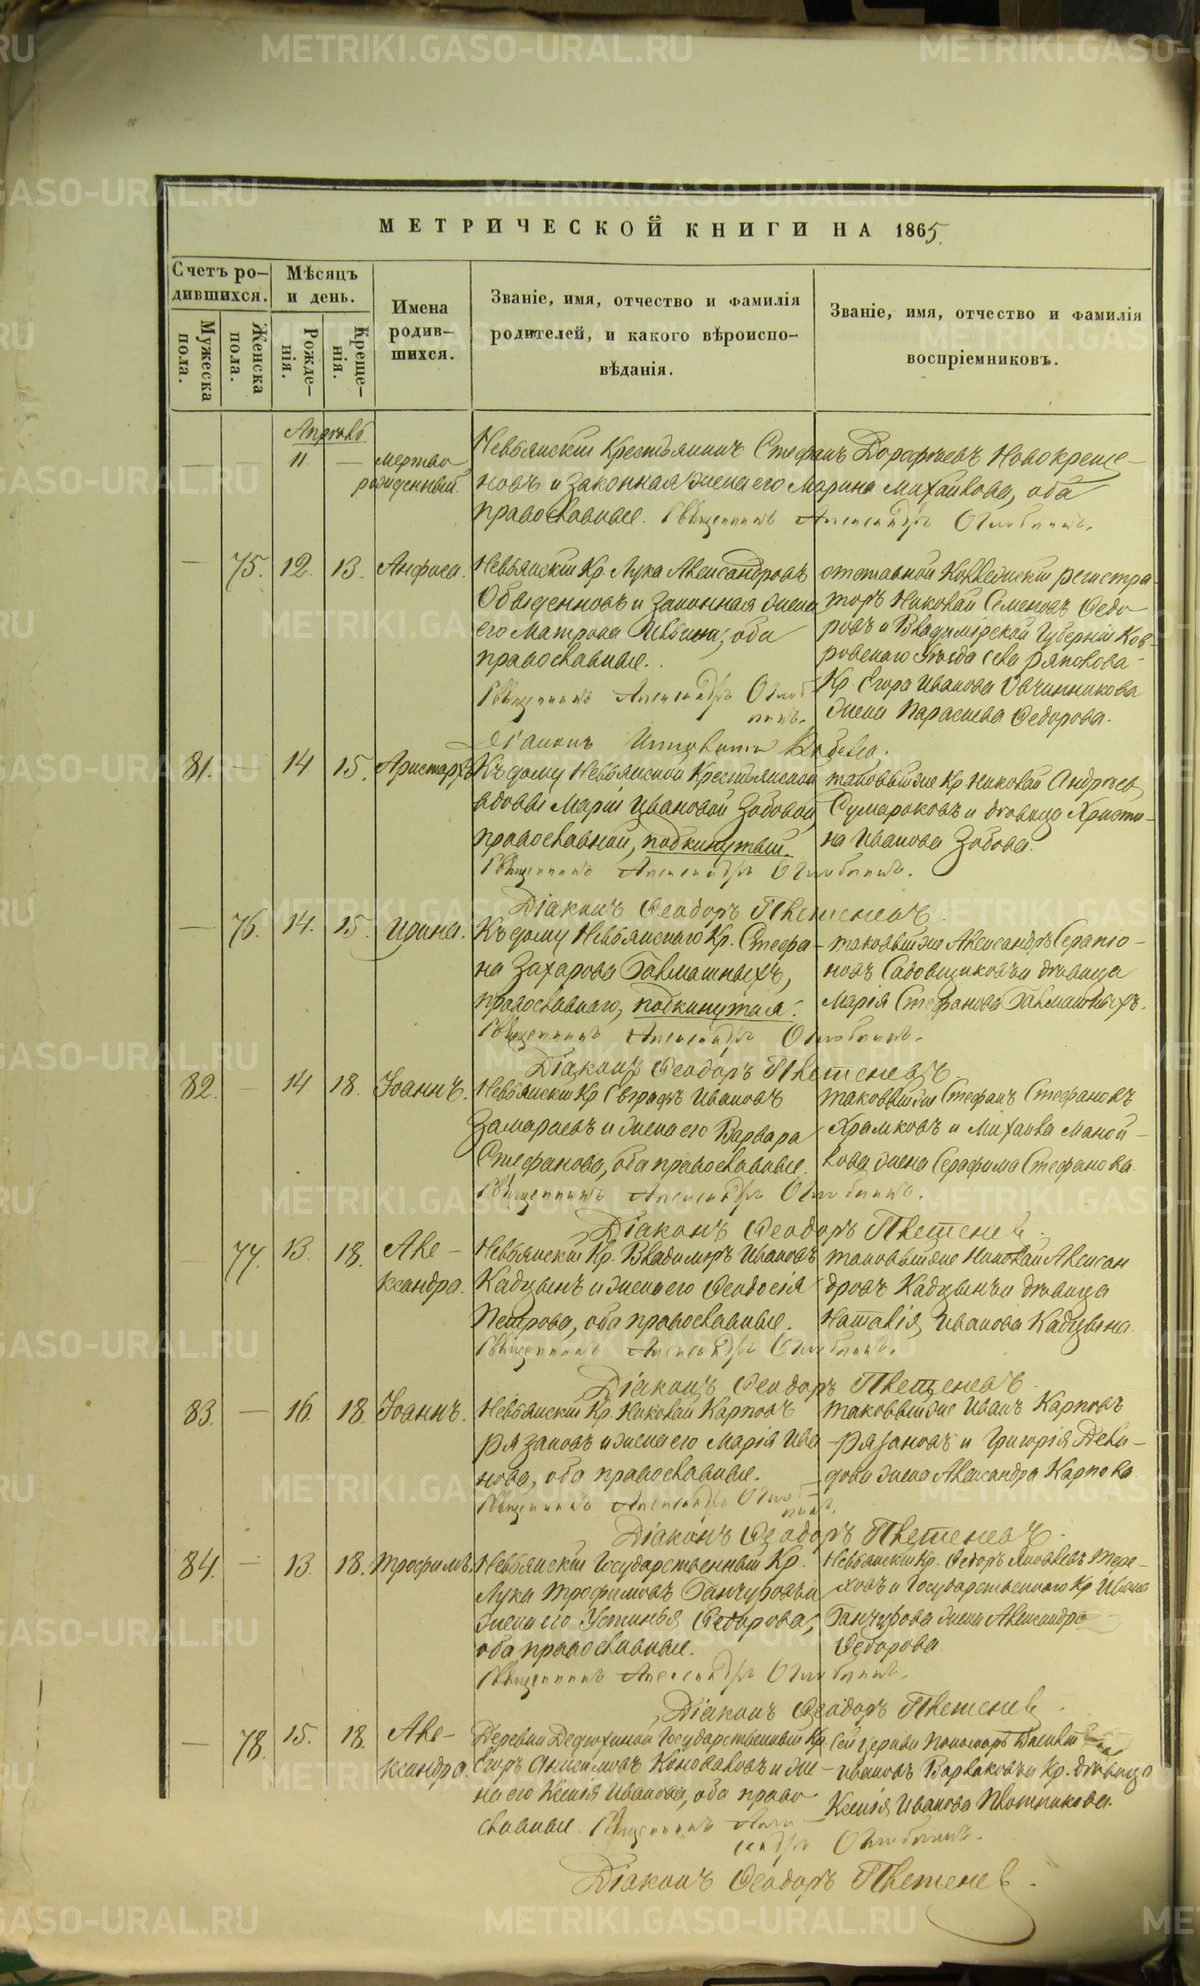 МЕТРИЧЕСКОЙ КНИГИ НА 1865.
Счетъ ро-
дившихся.
Мѣсяцъ
и день.
Имена
родив-
шихся.
Званіе, имя, отчество и фамилія
родителей, и какого вѣроиспо-
вѣданія.
Званіе, имя, отчество и фамилія
воспріемниковъ.
Мужеска
пола.
Женска
пола.
Рожде-
нія.
Креще-
нія.
Апрѣль
— 11. — мертво
рожденный.
Невьянскій Крестьянинъ Стефанъ Дорофѣевъ Новокреще-
новъ и законная жена его Марина Михайлова, оба
православные. Священникъ Александръ
— 75. 12. 13. Анфиса.
Невьянскій Кр. Лука Александровъ
Обыденновъ и законная жена
его Матрона Ильина, оба
православные.
Священникъ Александръ
отставной Коллежскій регистра-
торъ Николай Семеновъ Федо
ровъ и Владимірской Губерніи Ков-
ровскаго Уѣзда села
Кр. Егора Иванова Овчинникова
жена Параскева Федорова.
Діаконъ
81. — 14 15. Аристархъ
Къ дому Невьянской Крестьянской
вдовы Маріи Ивановой Зобовой,
православной, подкинутый.
Священникъ Александръ
таковыйже Кр Николай Андреевъ
Сумароковъ и дѣвица Христи-
на Иванова Зобова.
Діаконъ Феодоръ Плетеневъ.
— 76. 14. 15. Ирина.
Къ дому Невьянскаго Кр. Стефа-
на Захарова Балмашныхъ,
православнаго, подкинутая.
Священникъ Александръ
таковыйже Александръ Серапіо-
новъ Садовщиковъ и дѣвица
Марія Стефанова Балмашныхъ.
Діаконъ Феодоръ Плетеневъ.
82. — 14 18. Іоаннъ.
Невьянскій Кр Евграфъ Ивановъ
Замараевъ и жена его Варвара
Стефанова, оба православные.
Священникъ Александръ
таковыйже Стефанъ Стефановъ
Храмковъ и Михаила Маной-
лова жена Серафима Стефанова.
Діаконъ Феодоръ Плетеневъ
— 77. 13. 18. Але-
ксандра.
Невьянскій Кр. Владимиръ Ивановъ
Кадцынъ и жена его Феодосія
Петрова, оба православные.
Священникъ Александръ
таковыйже Николай Алексан
дровъ Кадцынъ и дѣвица
Наталія Иванова Кадцына.
Діаконъ Феодоръ Плетеневъ
83. — 16. 18. Іоаннъ.
Невьянскій Кр. Николай Карповъ
Рязановъ и жена его Марія Ива
нова, оба православные.
Священникъ Александръ
таковыйже Иванъ Карповъ
Рязановъ и Григорія Деви-
дова жена Александра Карпова.
Діаконъ Феодоръ Плетеневъ.
84. — 13. 18. Трофимъ.
Невьянскій Государственный Кр.
Лука Трофимовъ Ганчуровъ и
жена его Устинья Федорова,
оба православные.
Священникъ Александръ
Невьянскій Кр. Федоръ Яковлевъ Тере-
ховъ и Государственнаго Кр Ивана
Ганчурова жена Александра
Федорова.
Діаконъ Феодоръ Плетеневъ
— 78. 15. 18. Але-
ксандра.
Деревни Дедюхиной Государственный Кр.
Егоръ Анисимовъ Коноваловъ и же-
на его Ксенія Иванова, оба право
славные. Священникъ Алек
сандръ
Сей церкви Пономарь Василій
Ивановъ Варлаковъ и Кр. дѣвица
Ксенія Иванова Плотникова.
Діаконъ Феодоръ Плетеневъ.
METRIKI.GASO-URAL.RU